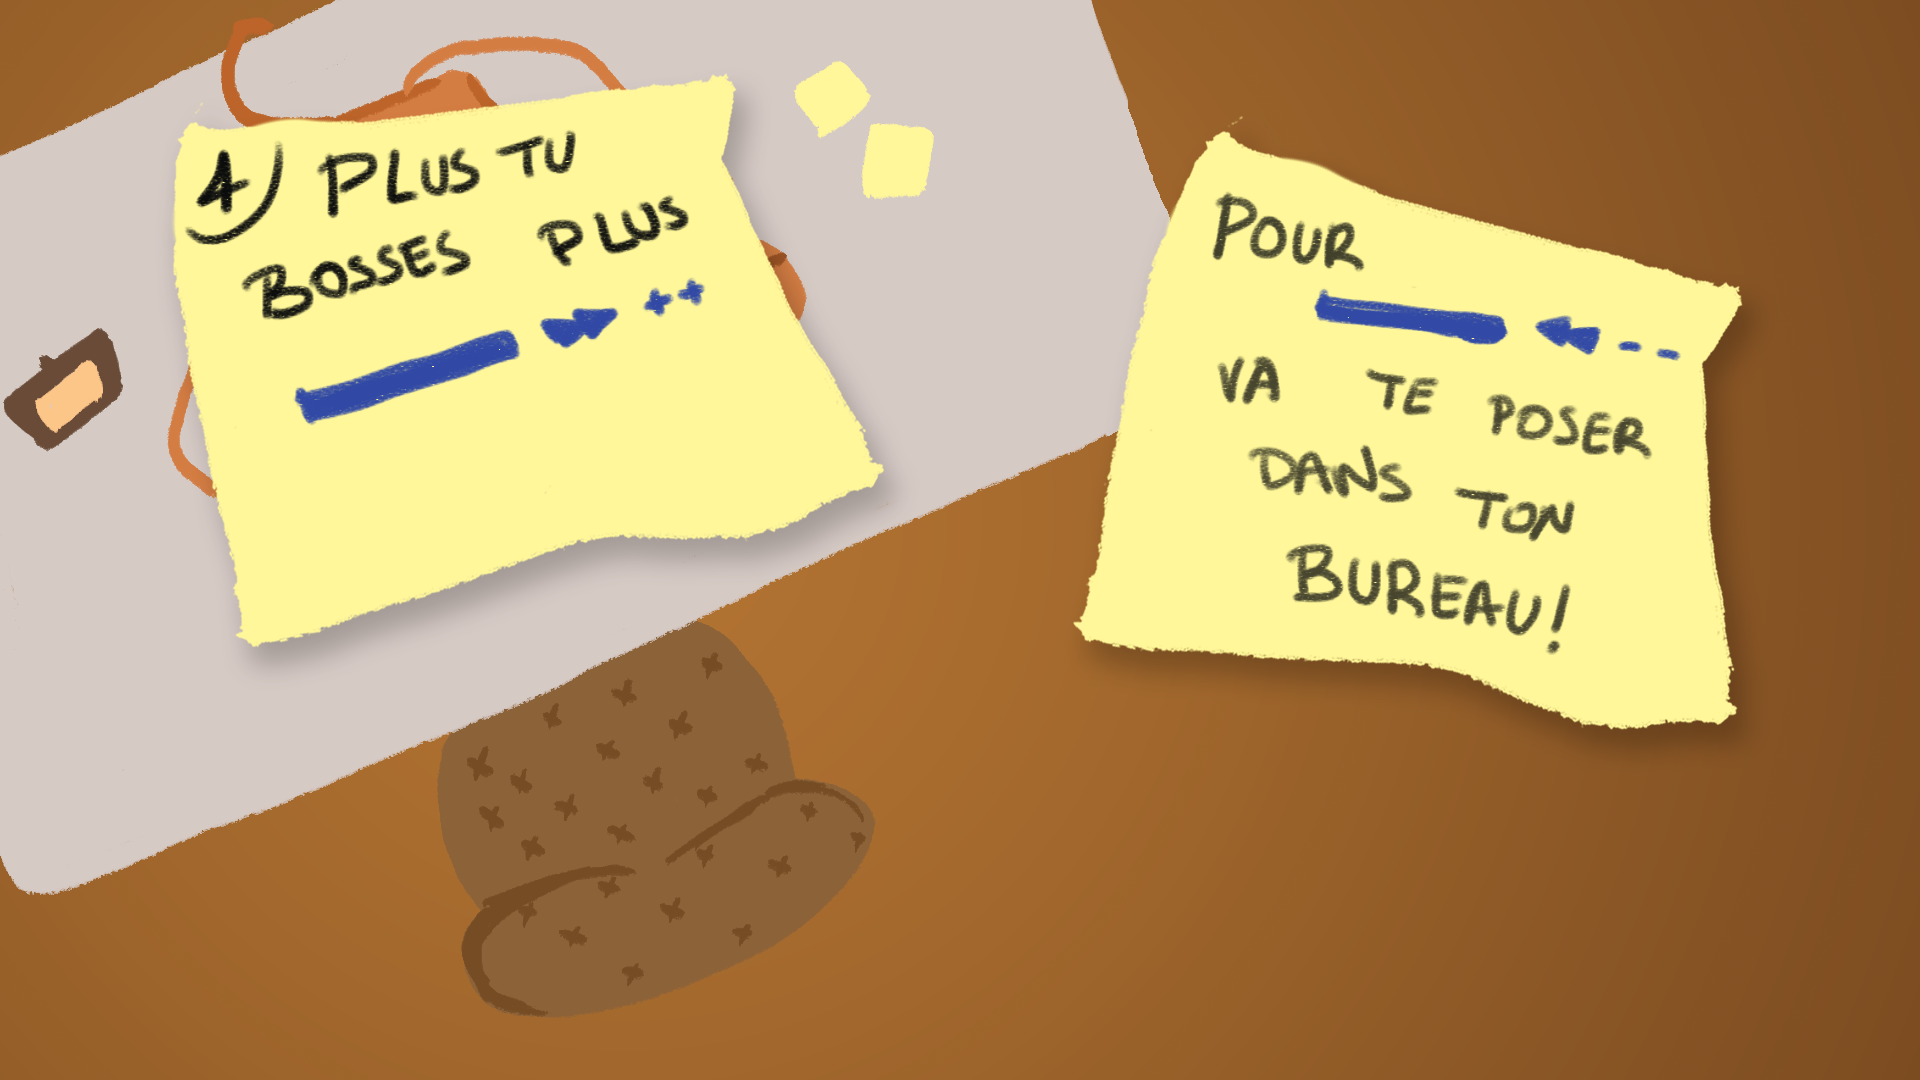 4) PLUS TU
BOSSES PLUS
++
POUR
--
VA TE POSER
DANS TON
BUREAU!